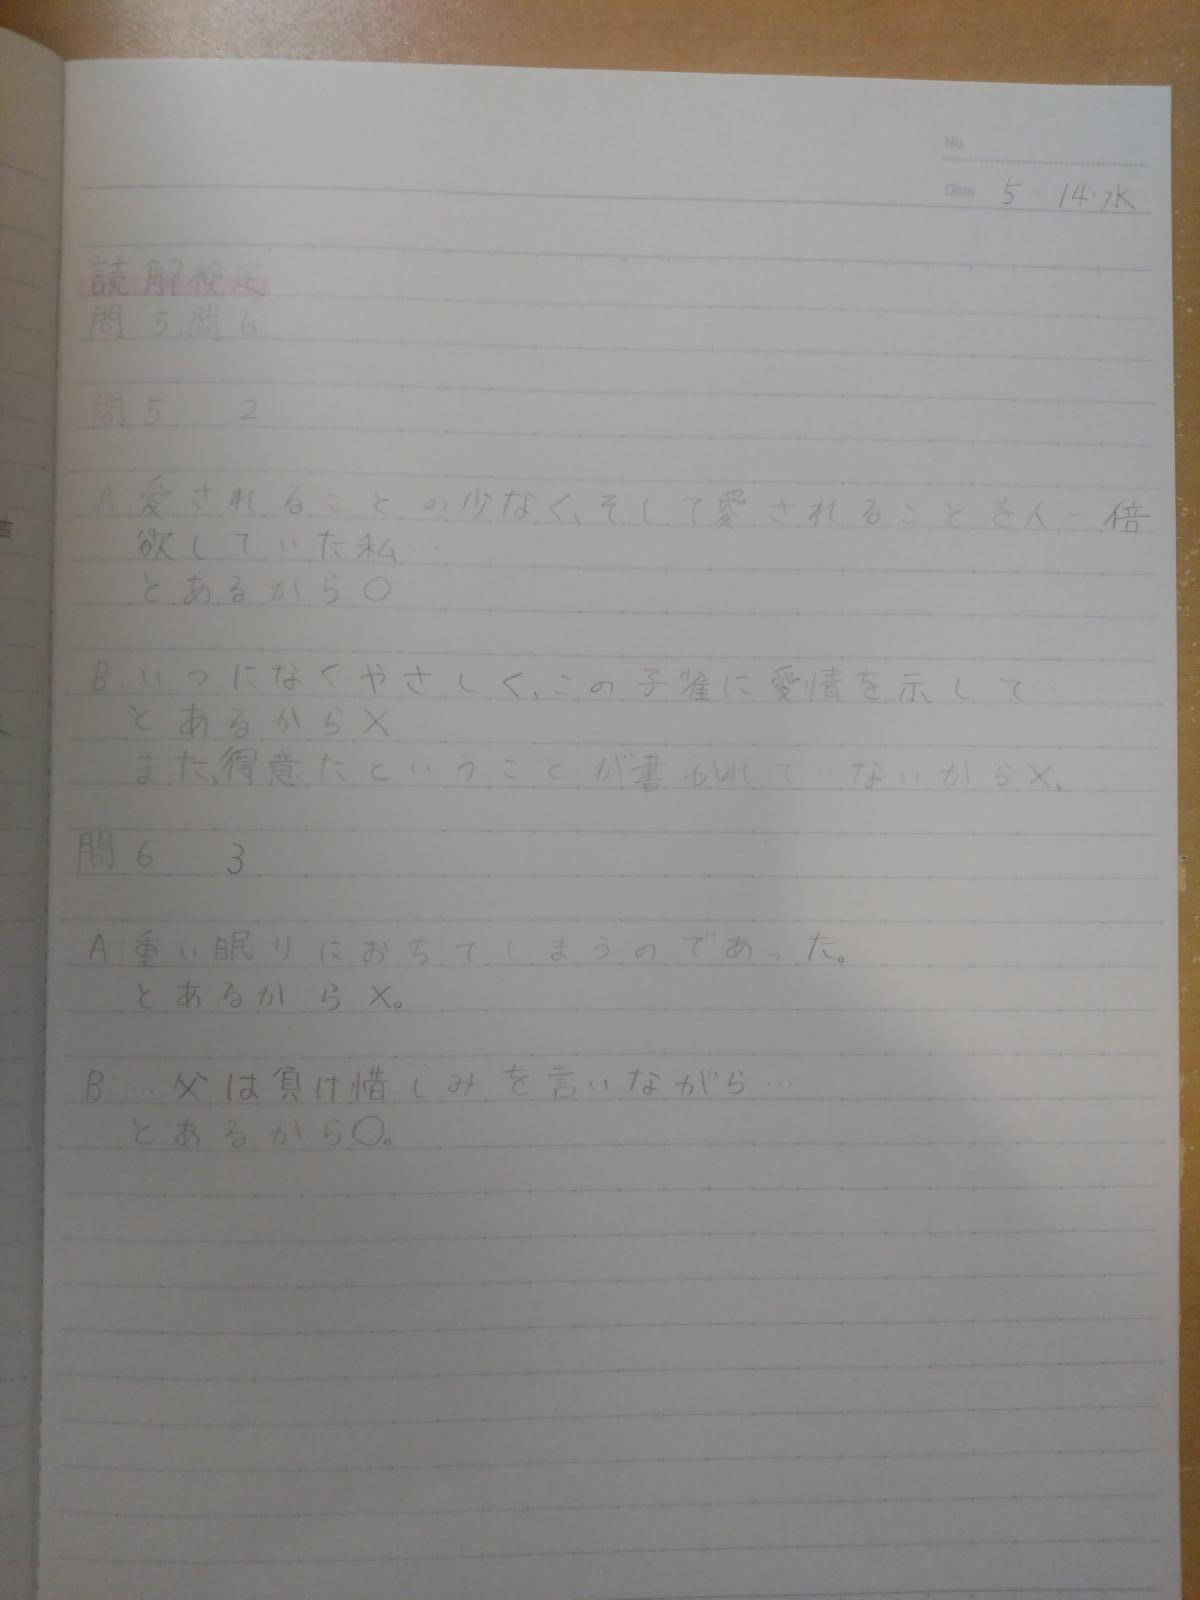 No.
Date 5・14・水
読解検定
問5、問6
問5 2
A:愛されることの少なく、そして愛されることを人一倍
欲していた私…
とあるから○
B:いつになくやさしく、この子雀に愛情を示して…
とあるから×
また、得意だということが書かれていないから×。
問6 3
A:重い眠りにおちてしまうのであった。
とあるから×。
B:…父は負け惜しみを言いながら…
とあるから○。